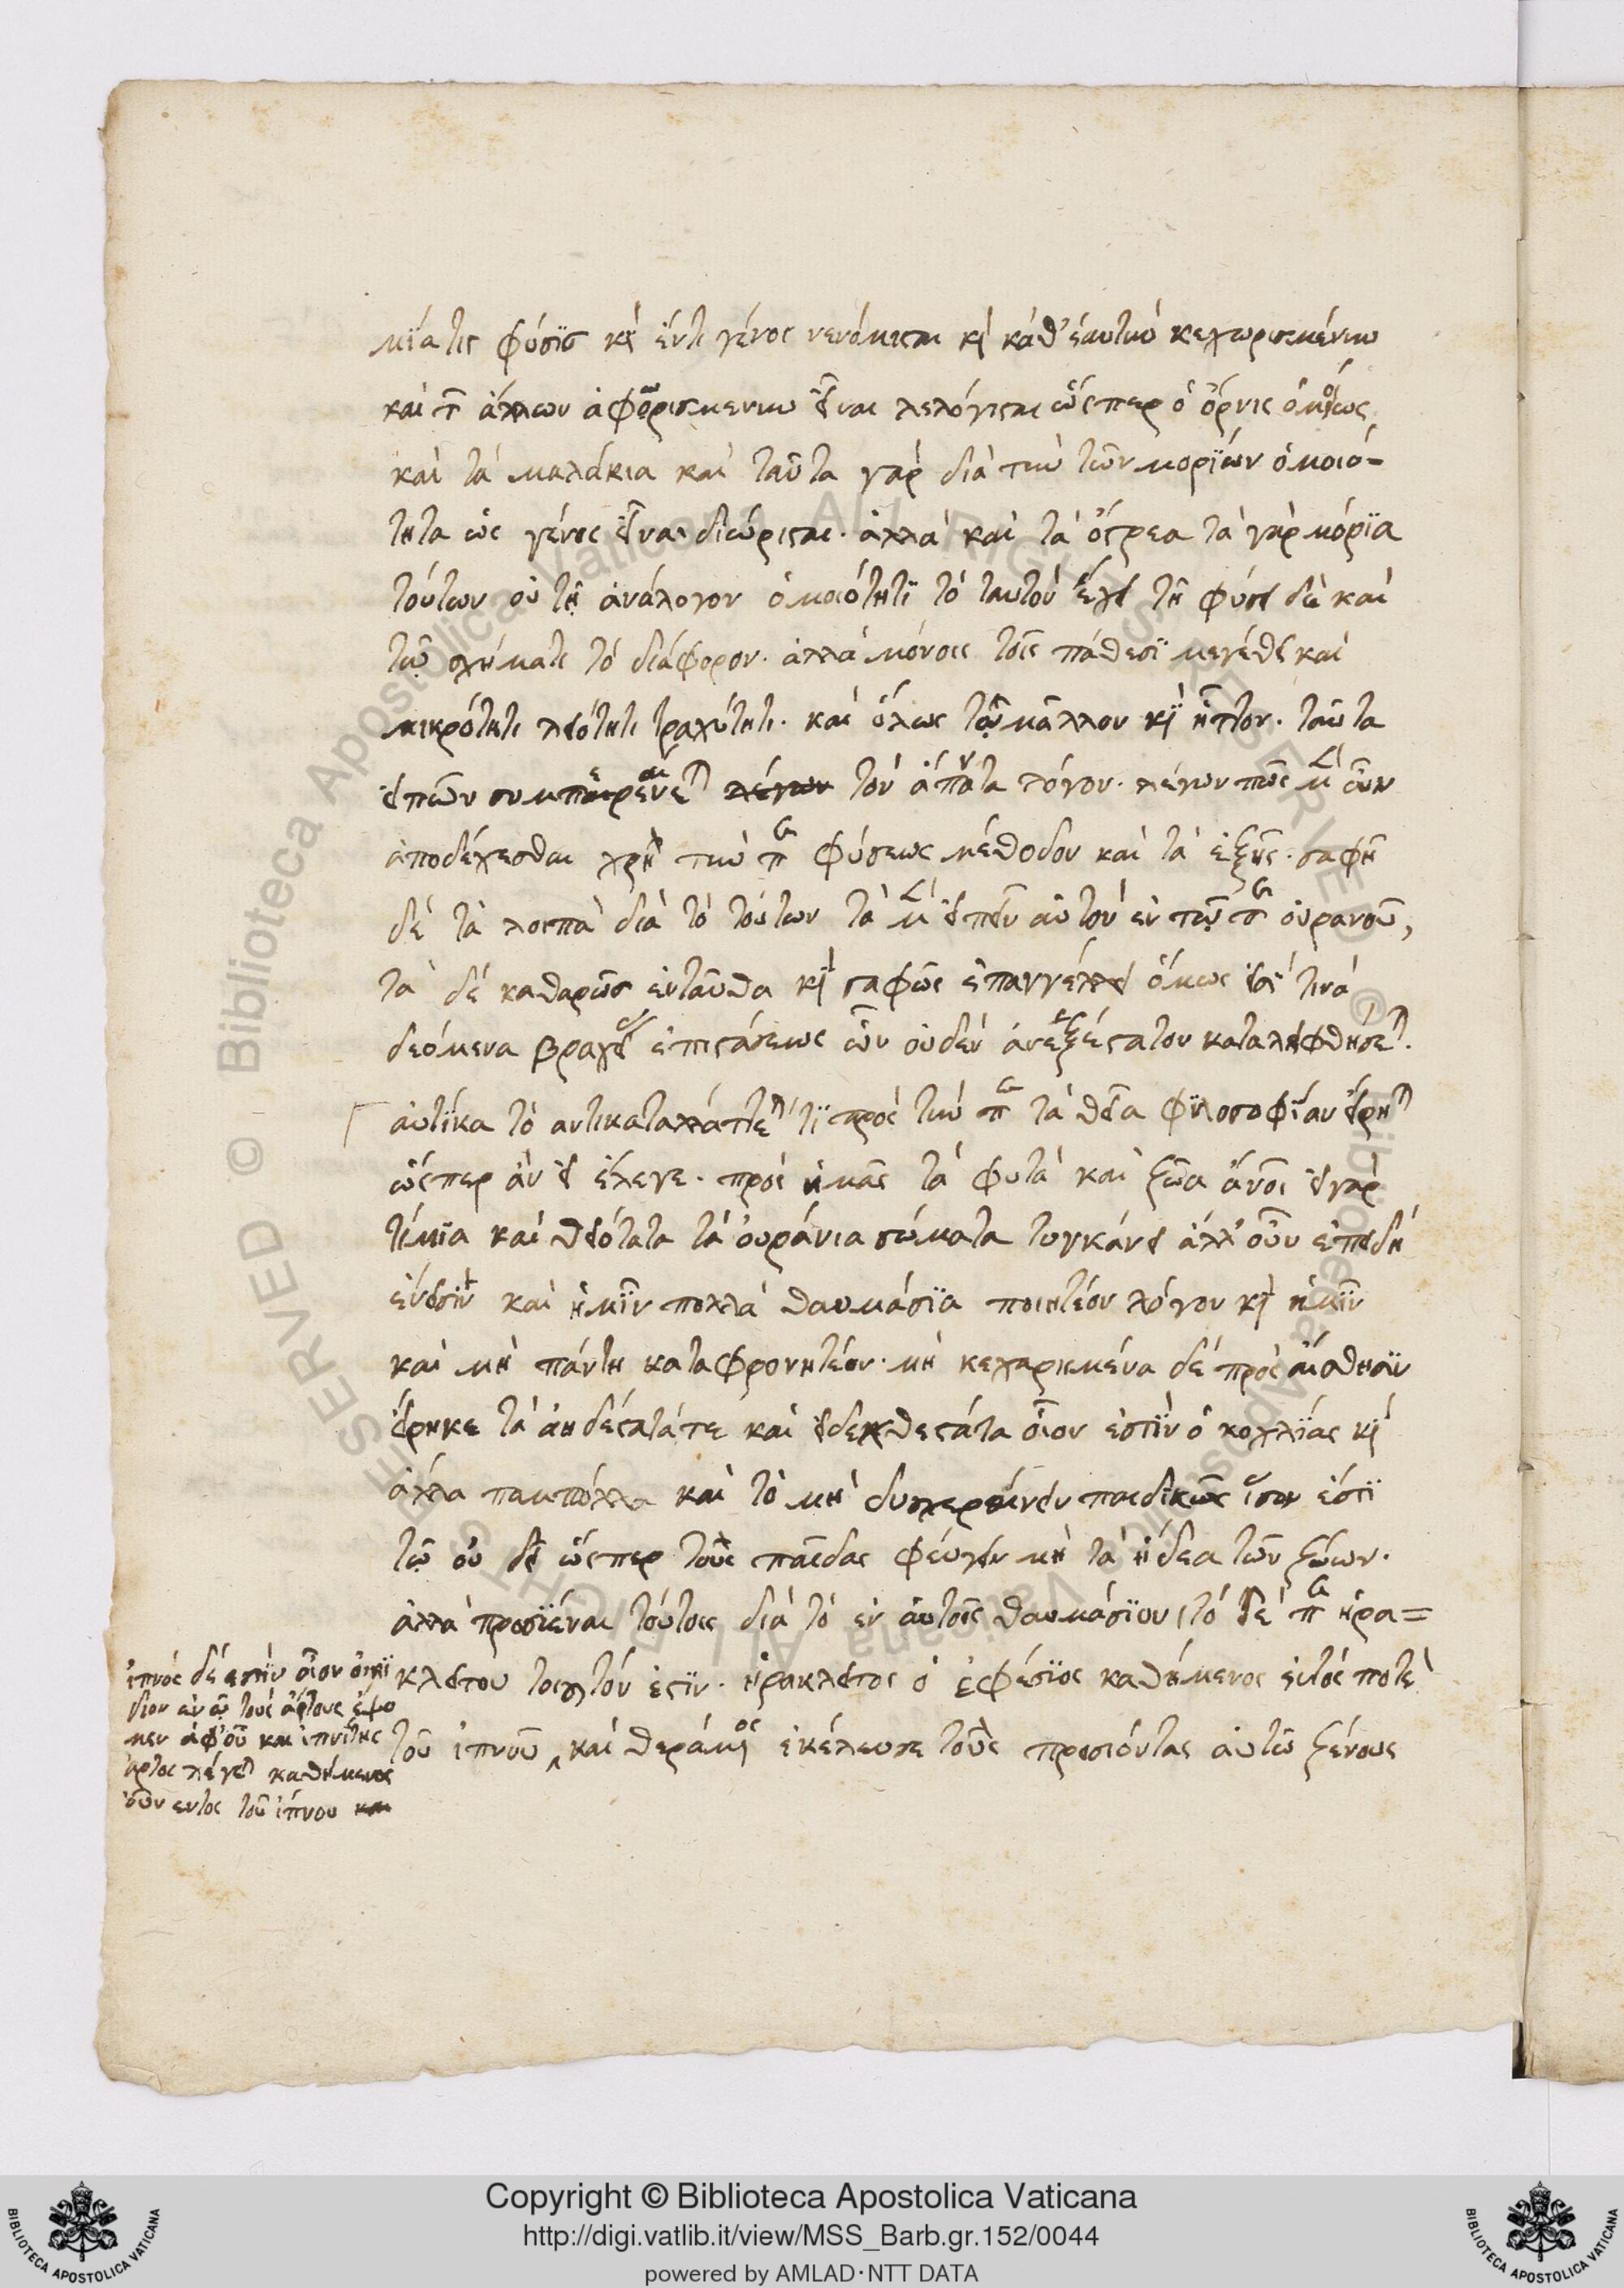 μία τις φύσις κὶ ἕν τι γένος νενόμισται κὶ κάθ' ἑαυτὴν κεχωρισμένην
καὶ τῶν ἄλλων ἀφωρισμενην εἶναι λελόγισται ὥσπερ ὁ ὄρνις ὁμοίως
καὶ τὰ μαλάκια καὶ ταῦτα γὰρ διὰ τὴν τῶν μορίων ὁμοιό-
τητα ὡς γένος εἶναι διώρισται. ἀλλὰ καὶ τὰ ὄστρεα τὰ γὰρ μόρια
τούτων οὐ τῇ ἀνάλογον ὁμοιότητι τὸ ταυτὸν ἔχει τῇ φύσει δὲ καὶ
τῷ σχήματι τὸ διάφορον. ἀλλὰ μόνοις τοῖς πάθεσι μεγέθει καὶ
μικρότητι λειότητι τραχύτητι. καὶ ὅλως τῷ μᾶλλον κὶ ἧττον. ταῦτα
εἰπὼν συμπεραίνεται τὸν ἅπαντα λόγον. λέγων πῶς μὲν οὖν
ἀποδέχεσθαι χρὴ τὴν περὶ φύσεως μέθοδον καὶ τὰ ἑξῆς. σαφῆ
δέ τὰ λοιπὰ διὰ τὸ τούτων τὰ μὲν εἰπεῖν αὐτὸν ἐν τῷ περὶ οὐρανοῦ,
τὰ δὲ καθαρῶς ἐνταῦθα κὶ σαφῶς ἐπαγγέλλει ὅμως εἰσί τινά
δεόμενα βραχείας ἐπιστάσεως ὧν οὐδὲν ἀνεξέταστον καταλειφθήσεται.
αὐτίκα τὸ αντικαταλλάττεταί τι πρὸς τὴν περὶ τὰ θεῖα φιλοσοφίαν εἴρηται
ὥσπερ ἂν εἰ ἔλεγε. πρὸς ἡμᾶς τὰ φυτὰ καὶ ζῶα ἄνοι εἰ γὰρ
τίμια καὶ θειότατα τὰ οὐράνια σώματα τυγχάνει ἀλλ' οὖν ἐπειδὴ
ἔνεισιν καὶ ἡμῖν πολλὰ θαυμάσια ποιητέον λόγον κὶ ἡμῖν
καὶ μὴ πάντη καταφρονητέον. μὴ κεχαρημένα δὲ πρὸς αἴσθησιν
εἴρηκε τὰ ἀηδέστατά τε καὶ εἰδεχθεστάτα οἷον ἐστὶν ὁ κοχλίας κὶ
ἄλλα παμπόλλα καὶ τὸ μὴ δυσχεραίνειν παιδικῶς ἴσον ἐστὶ
τῷ οὐ δεῖ ὥσπερ τοὺς παῖδας φεύγειν μὴ τὰ ἡδεα τῶν ζώων.
ἀλλὰ προσιέναι τούτοις διὰ τὸ ἐν αὐτοῖς θαυμάσιον, τὸ δὲ περὶ ἡρα=
κλείτου τοιοῦτόν ἐστιν. ἡράκλειτος ὁ ἐφέσιος καθήμενος ἐντός ποτε
τοῦ ἰπνοῦ καὶ θερόμενος ἐκέλευσε τοὺς προσιόντας αὐτῷ ξένους
ἰπνός δέ εστὶν οἷον οἰκί
διον ἐν ᾧ τοὺς ἄρτους ἕψο
μεν ἀφ' οὗ καὶ ἰπνίτης
ἄρτος λέγεται καθήμενος
οὖν εντος τοῦ ἰπνου και
Copyright © Biblioteca Apostolica Vaticana
http://digi.vatlib.it/view/MSS_Barb.gr.152/0044
powered by AMLAD·NTT DATA